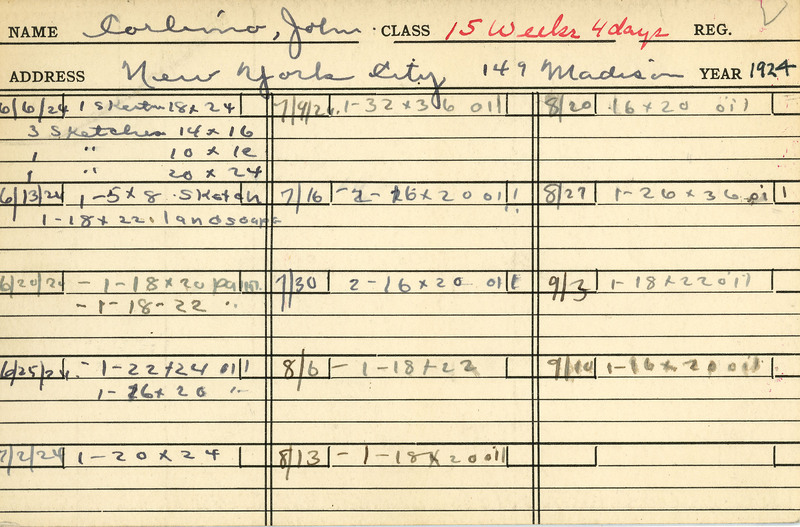 NAME Carlino, John CLASS 15 Weeks 4 days REG.
ADDRESS New York City 149 Madison YEAR 1924
6/6/24 1 Sketch 18 x 24
3 Sketches 14 x 16
1 " 10 x 12
1 " 20 x 24
6/13/24 1-5 x 8 Sketch
1-18 x 22 landscape
6/20/24 - 1-18 x 20
- 1-18-22 "
6/25/24 - 1-22 x 24 oil
1-16 x 20 "
7/2/24 1-20 x 24
7/9/24 1-32 x 36 oil
7/16 -2-16 x 20 oil
7/30 2-16 x 20 oil
8/6 - 1-18 x 22
8/13 - 1-18 x 20 oil
8/20 16 x 20 oil
8/27 1-26 x 36 oil
9/3 1-18 x 22 oil
9/10 1-16 x 20 oil